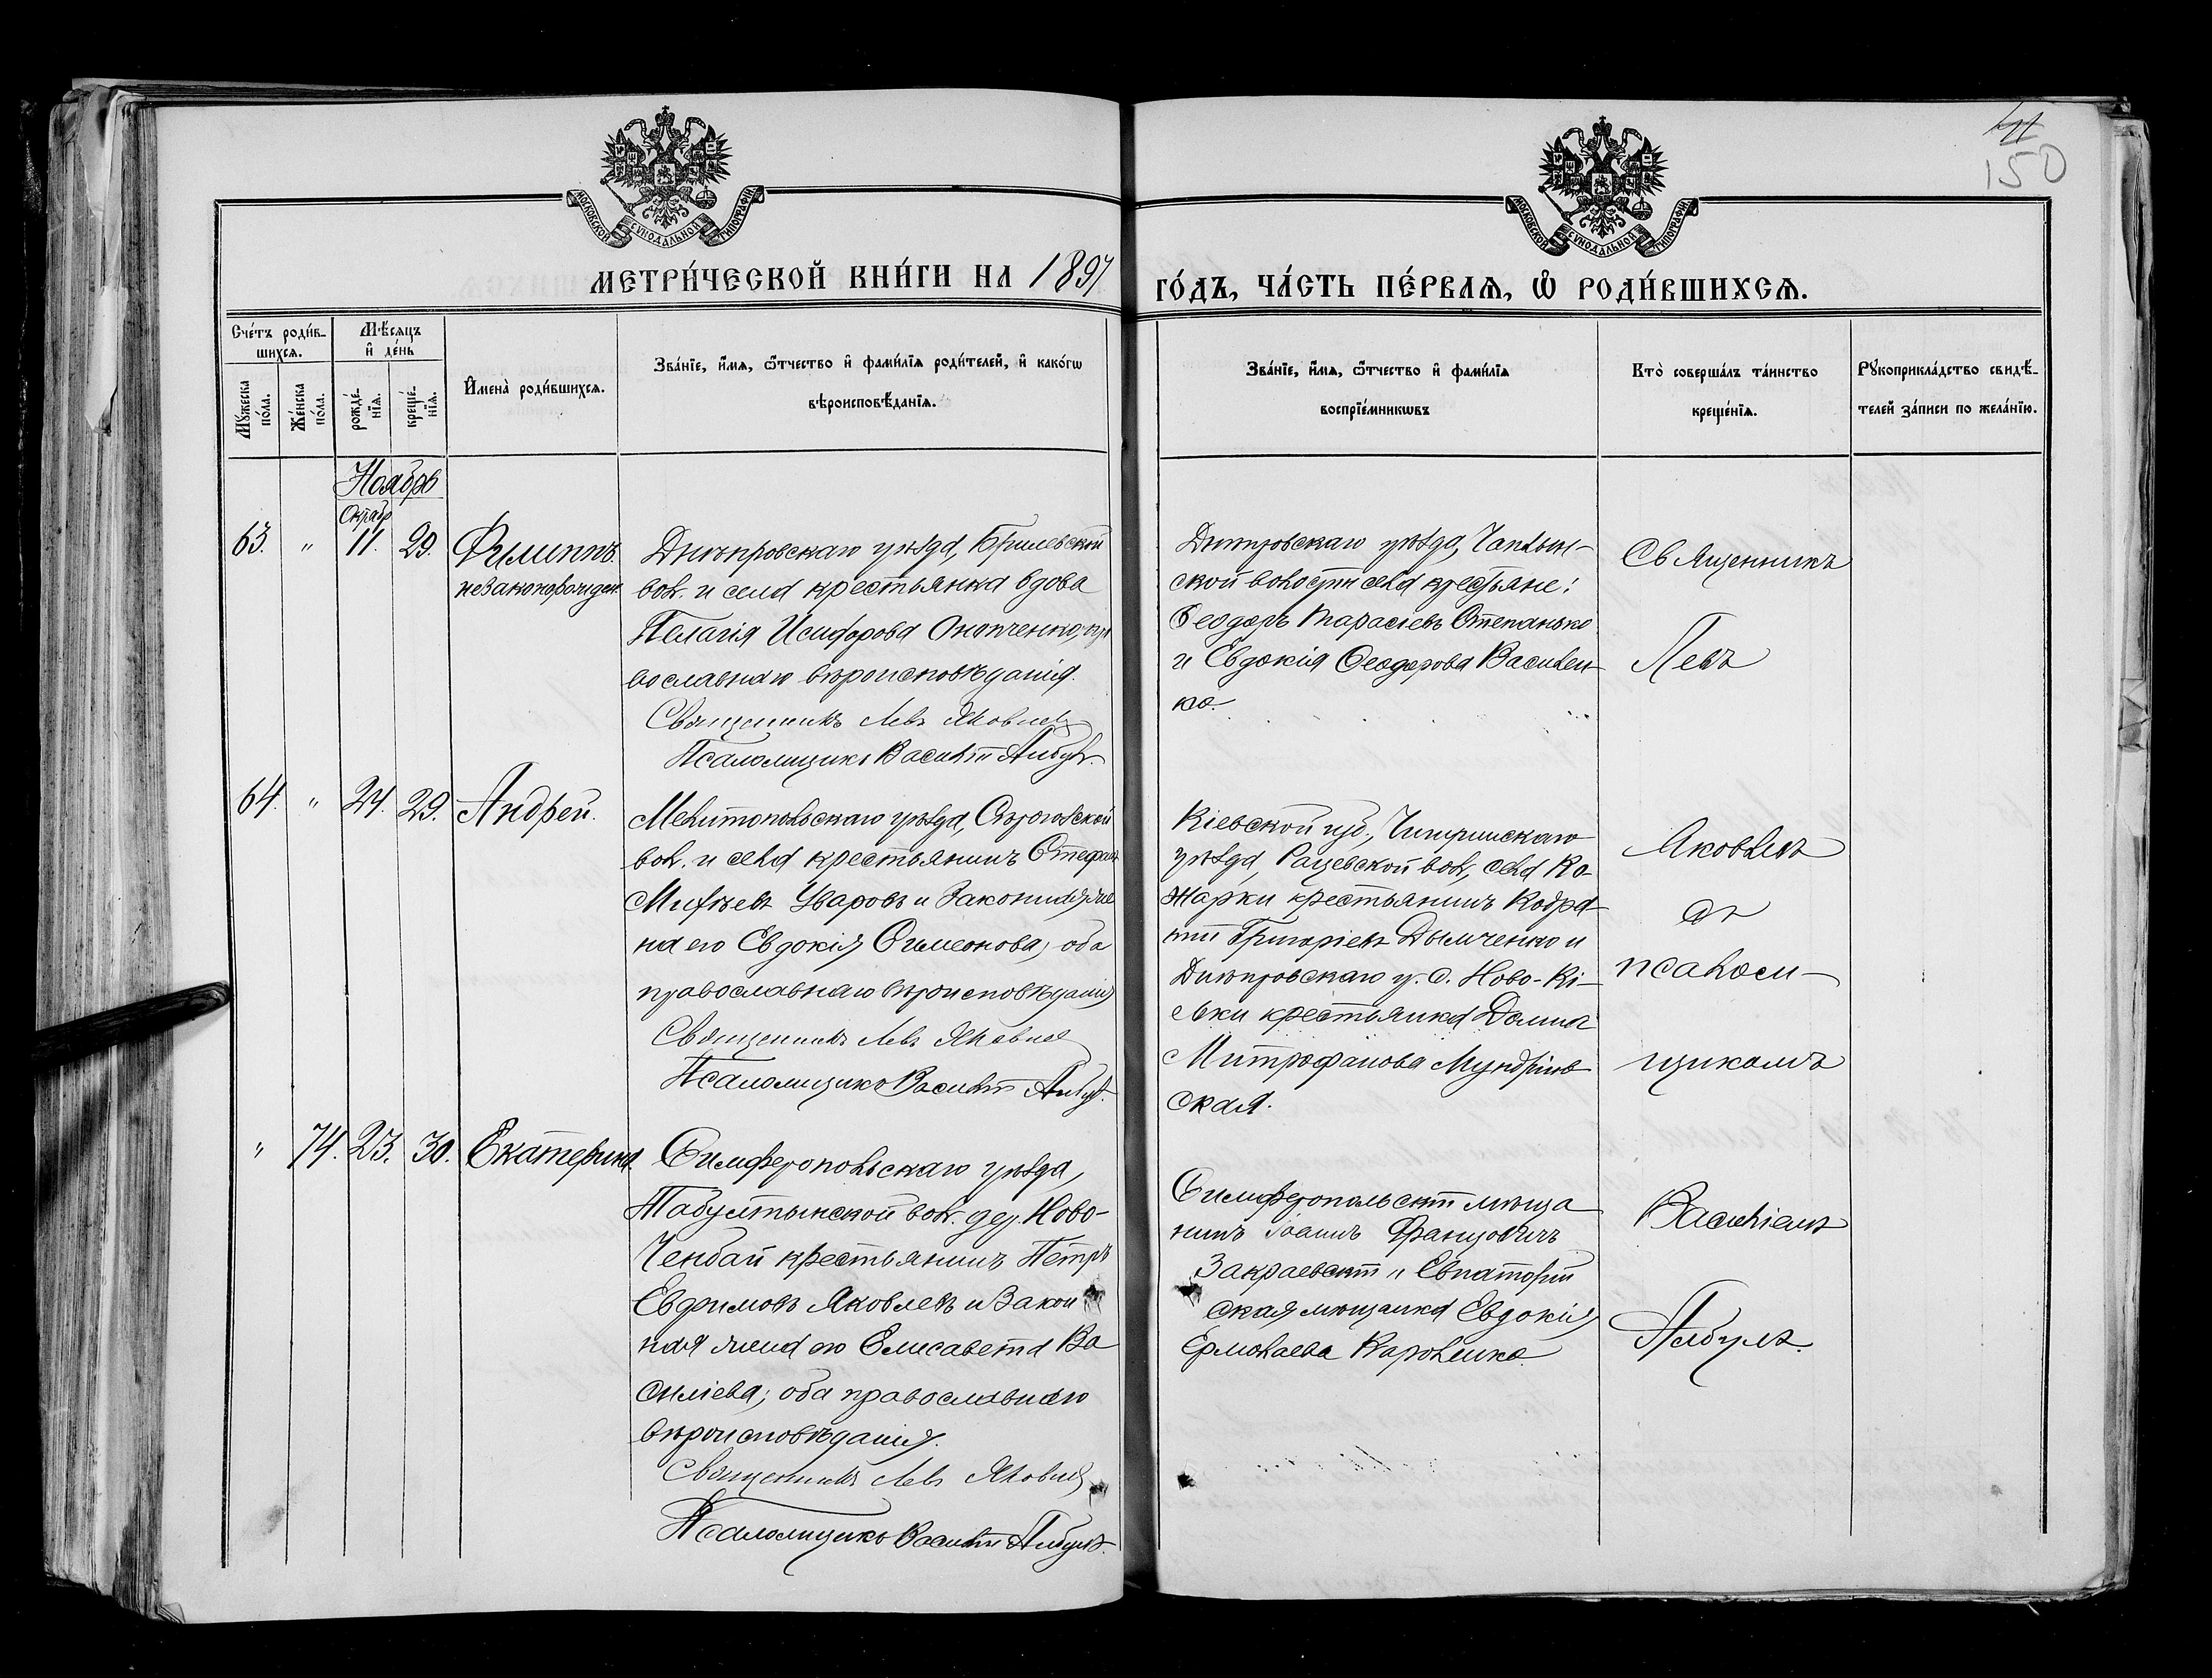 МОСКОВСКОЙ СѴНОДАЛЬНОЙ ТИПОГРАФІИ
МЕТРИ́ЧЕСКОЙ КНИ́ГИ НА 1897
Сче́тъ роди́в-
шихсѧ.
Мѣ́сѧцъ
и҆ де́нь
Мꙋ́жеска
по́ла.
Же́нска
по́ла.
рожде́-
нїѧ.
креще́-
нїѧ.
И҆мена̀ роди́вшихсѧ.
Зва́нїе, и҆́мѧ, ѻ҆́тчество и҆ фами́лїѧ роди́телей, и҆ како́гѡ
вѣроисповѣ́данїѧ.
Ноябрь
Октябр
63. " 11. 29. Филиппъ.
незаконорожден.
Днѣпровскаго уѣзда, Брилевской
вол. и села крестьянка вдова
Пелагія Исидорова Онопченко, пра
вославнаго вѣроисповѣданія.
Священникъ Левъ Яковлев
Псаломщикъ Василій Албулъ.
64. " 24. 29. Андрей.
Мелитопольскаго уѣзда, Сѣрогозской
вол. и села крестьянинъ Стефанъ
Михѣевъ Уваровъ и законная же
на его Евдокія Симеонова, оба
православнаго вѣроисповѣданія
Священникъ Левъ Яковлев
Псаломщикъ Василій Албул.
" 74. 23. 30. Екатерина.
Симферопольскаго уѣзда,
Табултынской вол. дер. Ново-
Ченбай крестьянинъ Петръ
Евфимовъ Яковлевъ и закон
ная жена его Елисавета Ва
силіева; оба православнаго
вѣроисповѣданія.
Священникъ Левъ Яковлев
Псаломщикъ Василій Албулъ.
150
МОСКОВСКОЙ СѴНОДАЛЬНОЙ ТИПОГРАФІИ
ГО́ДЪ, ЧА́СТЬ ПЕ́РВАѦ, Ѽ РОДИ́ВШИХСѦ.
Зва́нїе, и҆́мѧ, ѻ҆́тчество и҆ фами́лїѧ
воспрїе́мникѡвъ
Кто̀ соверша́лъ та́инство
креще́нїѧ.
Рꙋкоприкла́дство свидѣ́-
телей за́писи по жела́нїю.
Днѣпровскаго уѣзда, Чаплын-
ской волости села крестьяне:
Ѳеодоръ Тарасіевъ Степанько
и Евдокія Ѳеодорова Василен
ко.
Кіевской губ., Чигиринскаго
уѣзда, Рацевской вол., села Ко-
жарки крестьянинъ Кодра-
тій Григоріевъ Дымченко и
Днѣпровскаго у. с. Ново-Кі-
евки крестьянка Домна
Митрофанова Мундрiев
ская.
Симферопольскій мѣща
нинъ Іоаннъ Францовичъ
Закраевскій и Евпаторій
ская мѣщанка Евдокія
Ермолаева Короленко.
Священникъ
Левъ
Яковлевъ
съ
псалом-
щикомъ
Василіемъ
Албулъ.